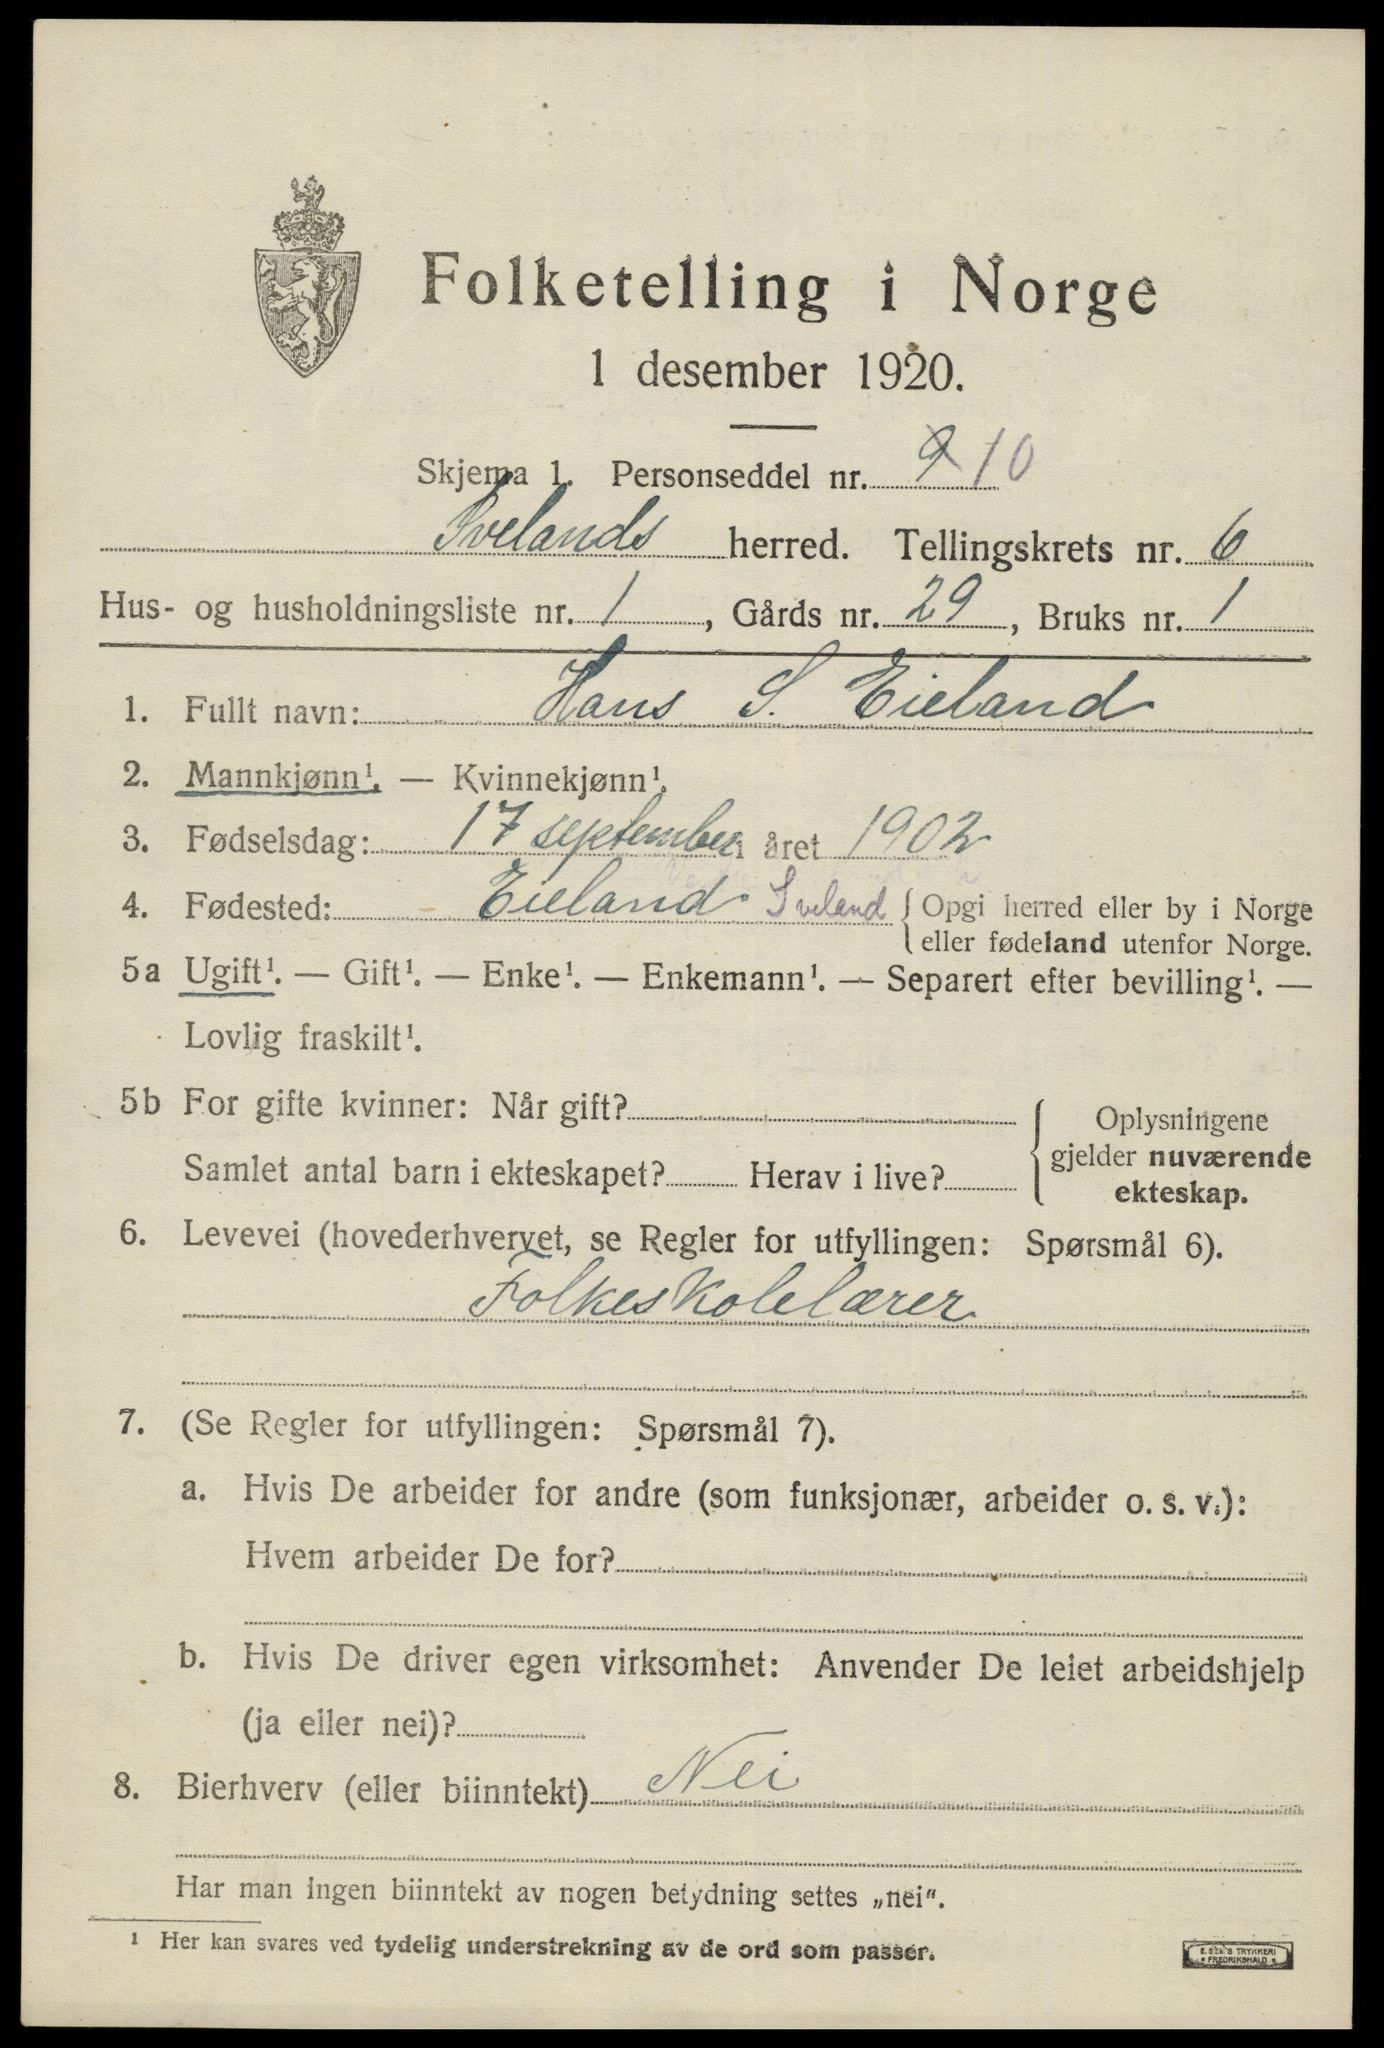 Folketelling i Norge
1 desember 1920.
Skjema 1. Personseddel nr. 9 10
Ivelands herred. Tellingskrets nr. 6
Hus- og husholdningsliste nr. 1, Gårds nr. 29, Bruks nr. 1
1. Fullt navn: Hans S. Eieland
2. Mannkjønn¹. — Kvinnekjønn¹.
3. Fødselsdag: 17 september i året 1902
4. Fødested: Eieland Iveland { Opgi herred eller by i Norge
eller fødeland utenfor Norge.
5a Ugift¹. — Gift¹. — Enke¹. — Enkemann¹. — Separert efter bevilling¹. —
Lovlig fraskilt¹.
5b For gifte kvinner: Når gift?
Samlet antal barn i ekteskapet? Herav i live?
{ Oplysningene
gjelder nuværende
ekteskap.
6. Levevei (hovederhvervet, se Regler for utfyllingen: Spørsmål 6).
Folkeskolelærer
7. (Se Regler for utfyllingen: Spørsmål 7).
a. Hvis De arbeider for andre (som funksjonær, arbeider o. s. v.):
Hvem arbeider De for?
b. Hvis De driver egen virksomhet: Anvender De leiet arbeidshjelp
(ja eller nei)?
8. Bierhverv (eller biinntekt) Nei
Har man ingen biinntekt av nogen betydning settes „nei".
¹ Her kan svares ved tydelig understrekning av de ord som passer.
E. SEM'S TRYKKERI
FREDRIKSHALD